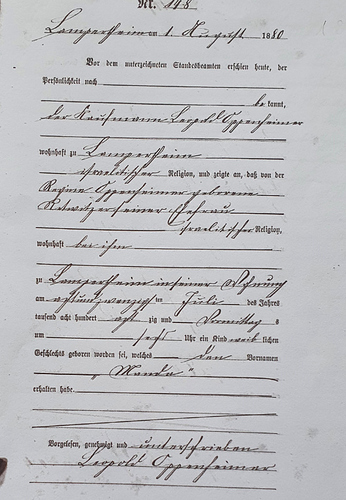 Nr. 148
Lampertheim am 1. August 1880
Vor dem unterzeichneten Standesbeamten erschien heute, der
Persönlichkeit nach
be kannt,
der Kaufmann Leopold Oppenheimer
wohnhaft zu Lampertheim
israelitischer Religion, und zeigte an, daß von der
Regine Oppenheimer geborene
seiner Ehefrau
israelitischer Religion,
wohnhaft bei ihm
zu Lampertheim in seiner Wohnung
am achtundzwanzigten Juli des Jahres
tausend acht hundert acht zig und Vormittag s
um sechs Uhr ein Kind weib lichen
Geschlechts geboren worden sei, welches den Vornamen
"Manda"
erhalten habe.
Vorgelesen, genehmigt und unterschrieben
Leopold Oppenheimer